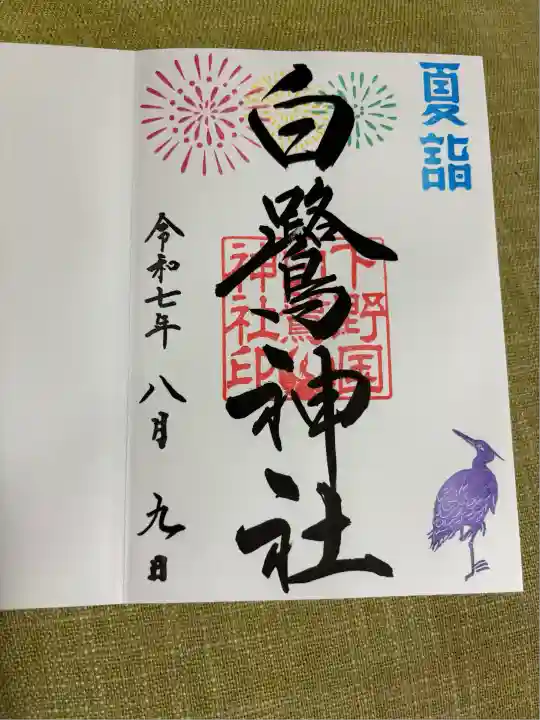 夏詣
白鷺神社
下野国
白鷺
神社印
令和七年 八月 九日